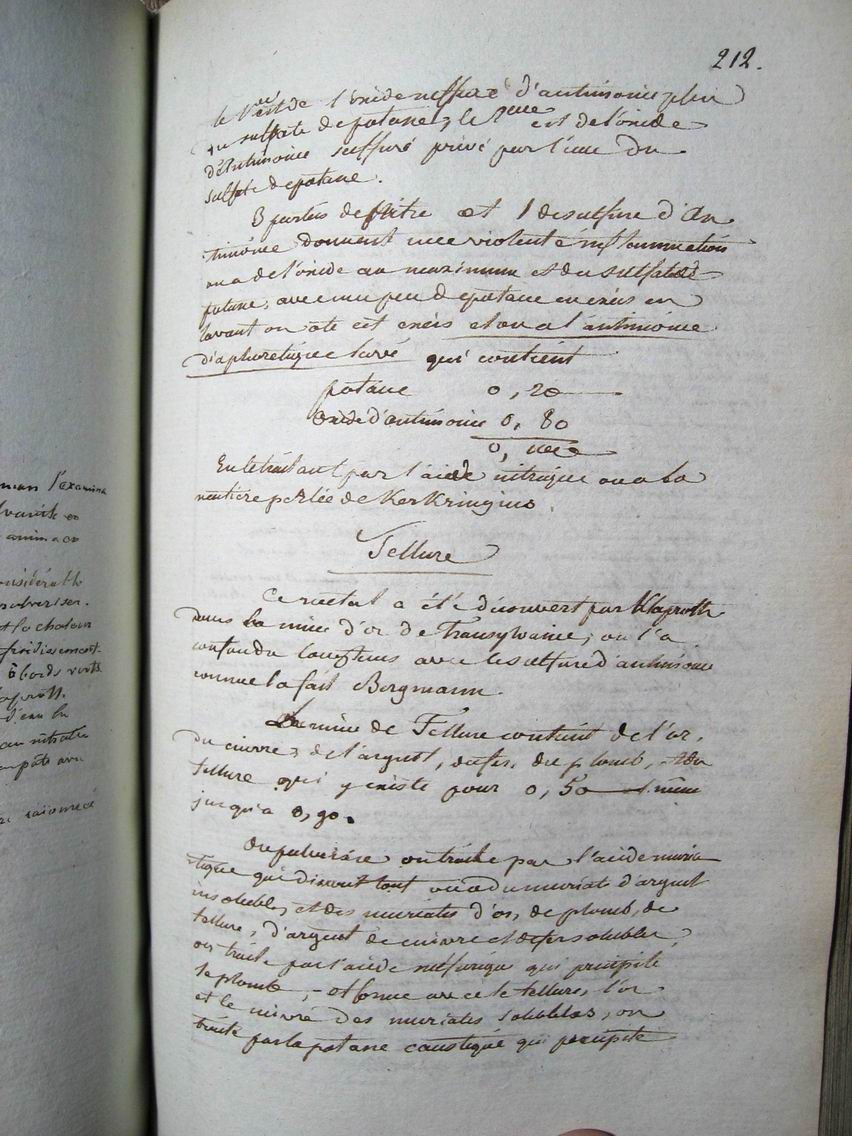 212.
le 1er est de l'oxide sulfuré d'antimoine plus
du sulfate de potasse, le 2eme est de l'oxide
d'Antimoine sulfuré privé par l'eau du
sulfate de potasse.
3 parties de Nitre et 1 de sulfure d'An
timoine donnent une violente inflammation
on a de l'oxide au maximum et du sulfate de
potasse, avec un peu de potasse en excès en
lavant on ote cet excès et on a l'antimoine
diaphoretique lavé qui contient
potasse 0,20
oxide d'antimoine 0,80
0,
En le traitant par l'acide nitrique on a la
matiere perlée de Kerkringius.
Tellure
Ce metal a été découvert par Klaproth
dans La mine d'or de Transylvanie, on l'a
confondu longtems avec le sulfure d'antimoine
comme l'a fait Bergmann.
La mine de Tellure contient de l'or,
du cuivre, de l'argent, du fer, du plomb, et du
tellure qui y existe pour 0,50 et même
jusqu'a 0,90.
On pulverise on traite par l'acide muria
tique qui dissout tout on a du muriate d'argent
insoluble, et des muriates d'or, de plomb, de
tellure, d'argent de cuivre et de fer solubles,
on traite par l'acide sulfurique qui précipite
le plomb, et forme avec le tellure, l'or
et le cuivre des muriates solubles, on
traite par la potasse caustique qui précipite
man l'examina
considérable
pulveriser.
et la chaleur
froidissement
à bords verts
d'eau la
au nitrate